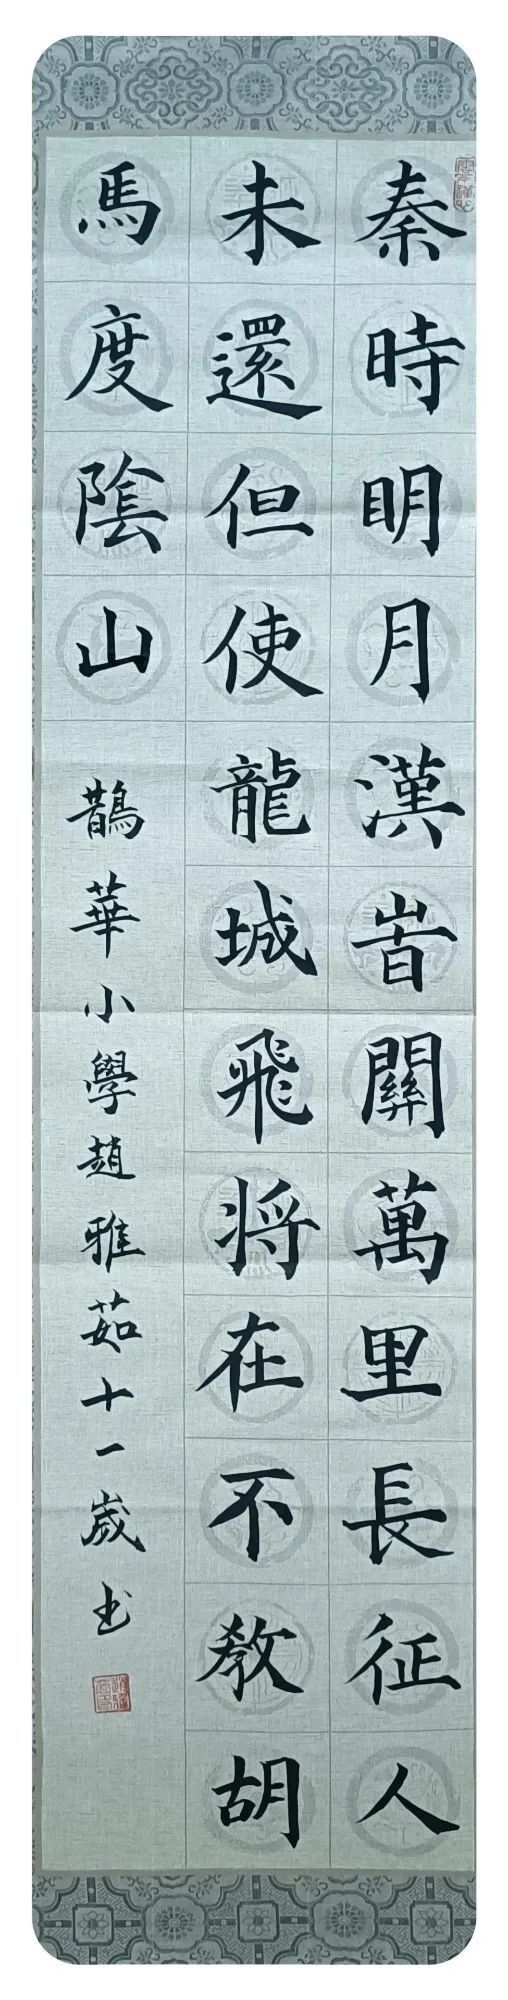 秦時明月漢旹關萬里長征人
未還但使龍城飛将在不教胡
馬度陰山
鵲華小學趙雅茹十一歲书